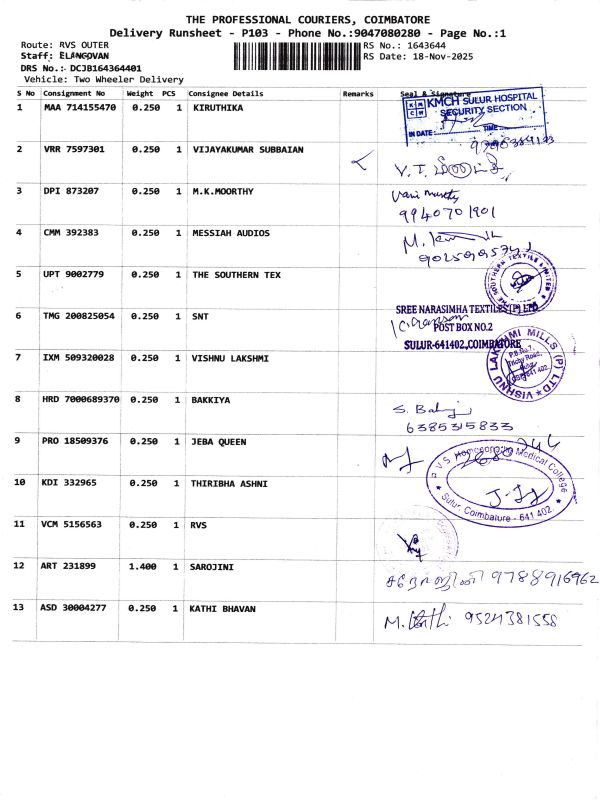 THE PROFESSIONAL COURIERS, COIMBATORE
Delivery Runsheet - P103 - Phone No.:9047080280 - Page No.:1
Route: RVS OUTER
RS No.: 1643644
Staff: ELANGOVAN
RS Date: 18-Nov-2025
DRS No.:- DCJB164364401
Vehicle: Two Wheeler Delivery
S No Consignment No Weight PCS Consignee Details Remarks Seal & Signature
1 MAA 714155470 0.250 1 KIRUTHIKA
KMCH SULUR HOSPITAL
SECURITY SECTION
IN DATE: TIME
2 VRR 7597301 0.250 1 VIJAYAKUMAR SUBBAIAN
V.T.
3 DPI 873207 0.250 1 M.K.MOORTHY
9940701901
4 CMM 392383 0.250 1 MESSIAH AUDIOS
5 UPT 9002779 0.250 1 THE SOUTHERN TEX
6 TMG 200825054 0.250 1 SNT
SREE NARASIMHA TEXTILES (P) LTD
POST BOX NO.2
SULUR-641402, COIMBATORE
7 IXM 509320028 0.250 1 VISHNU LAKSHMI
VISHNU LAKSHMI MILLS (P) LTD
8 HRD 7000689370 0.250 1 BAKKIYA
6385315833
9 PRO 18509376 0.250 1 JEBA QUEEN
R.V.S. Homoeopathy Medical College
Sulur, Coimbatore - 641 402.
10 KDI 332965 0.250 1 THIRIBHA ASHNI
11 VCM 5156563 0.250 1 RVS
12 ART 231899 1.400 1 SAROJINI
சரோஜினி 9788916962
13 ASD 30004277 0.250 1 KATHI BHAVAN
9524381558